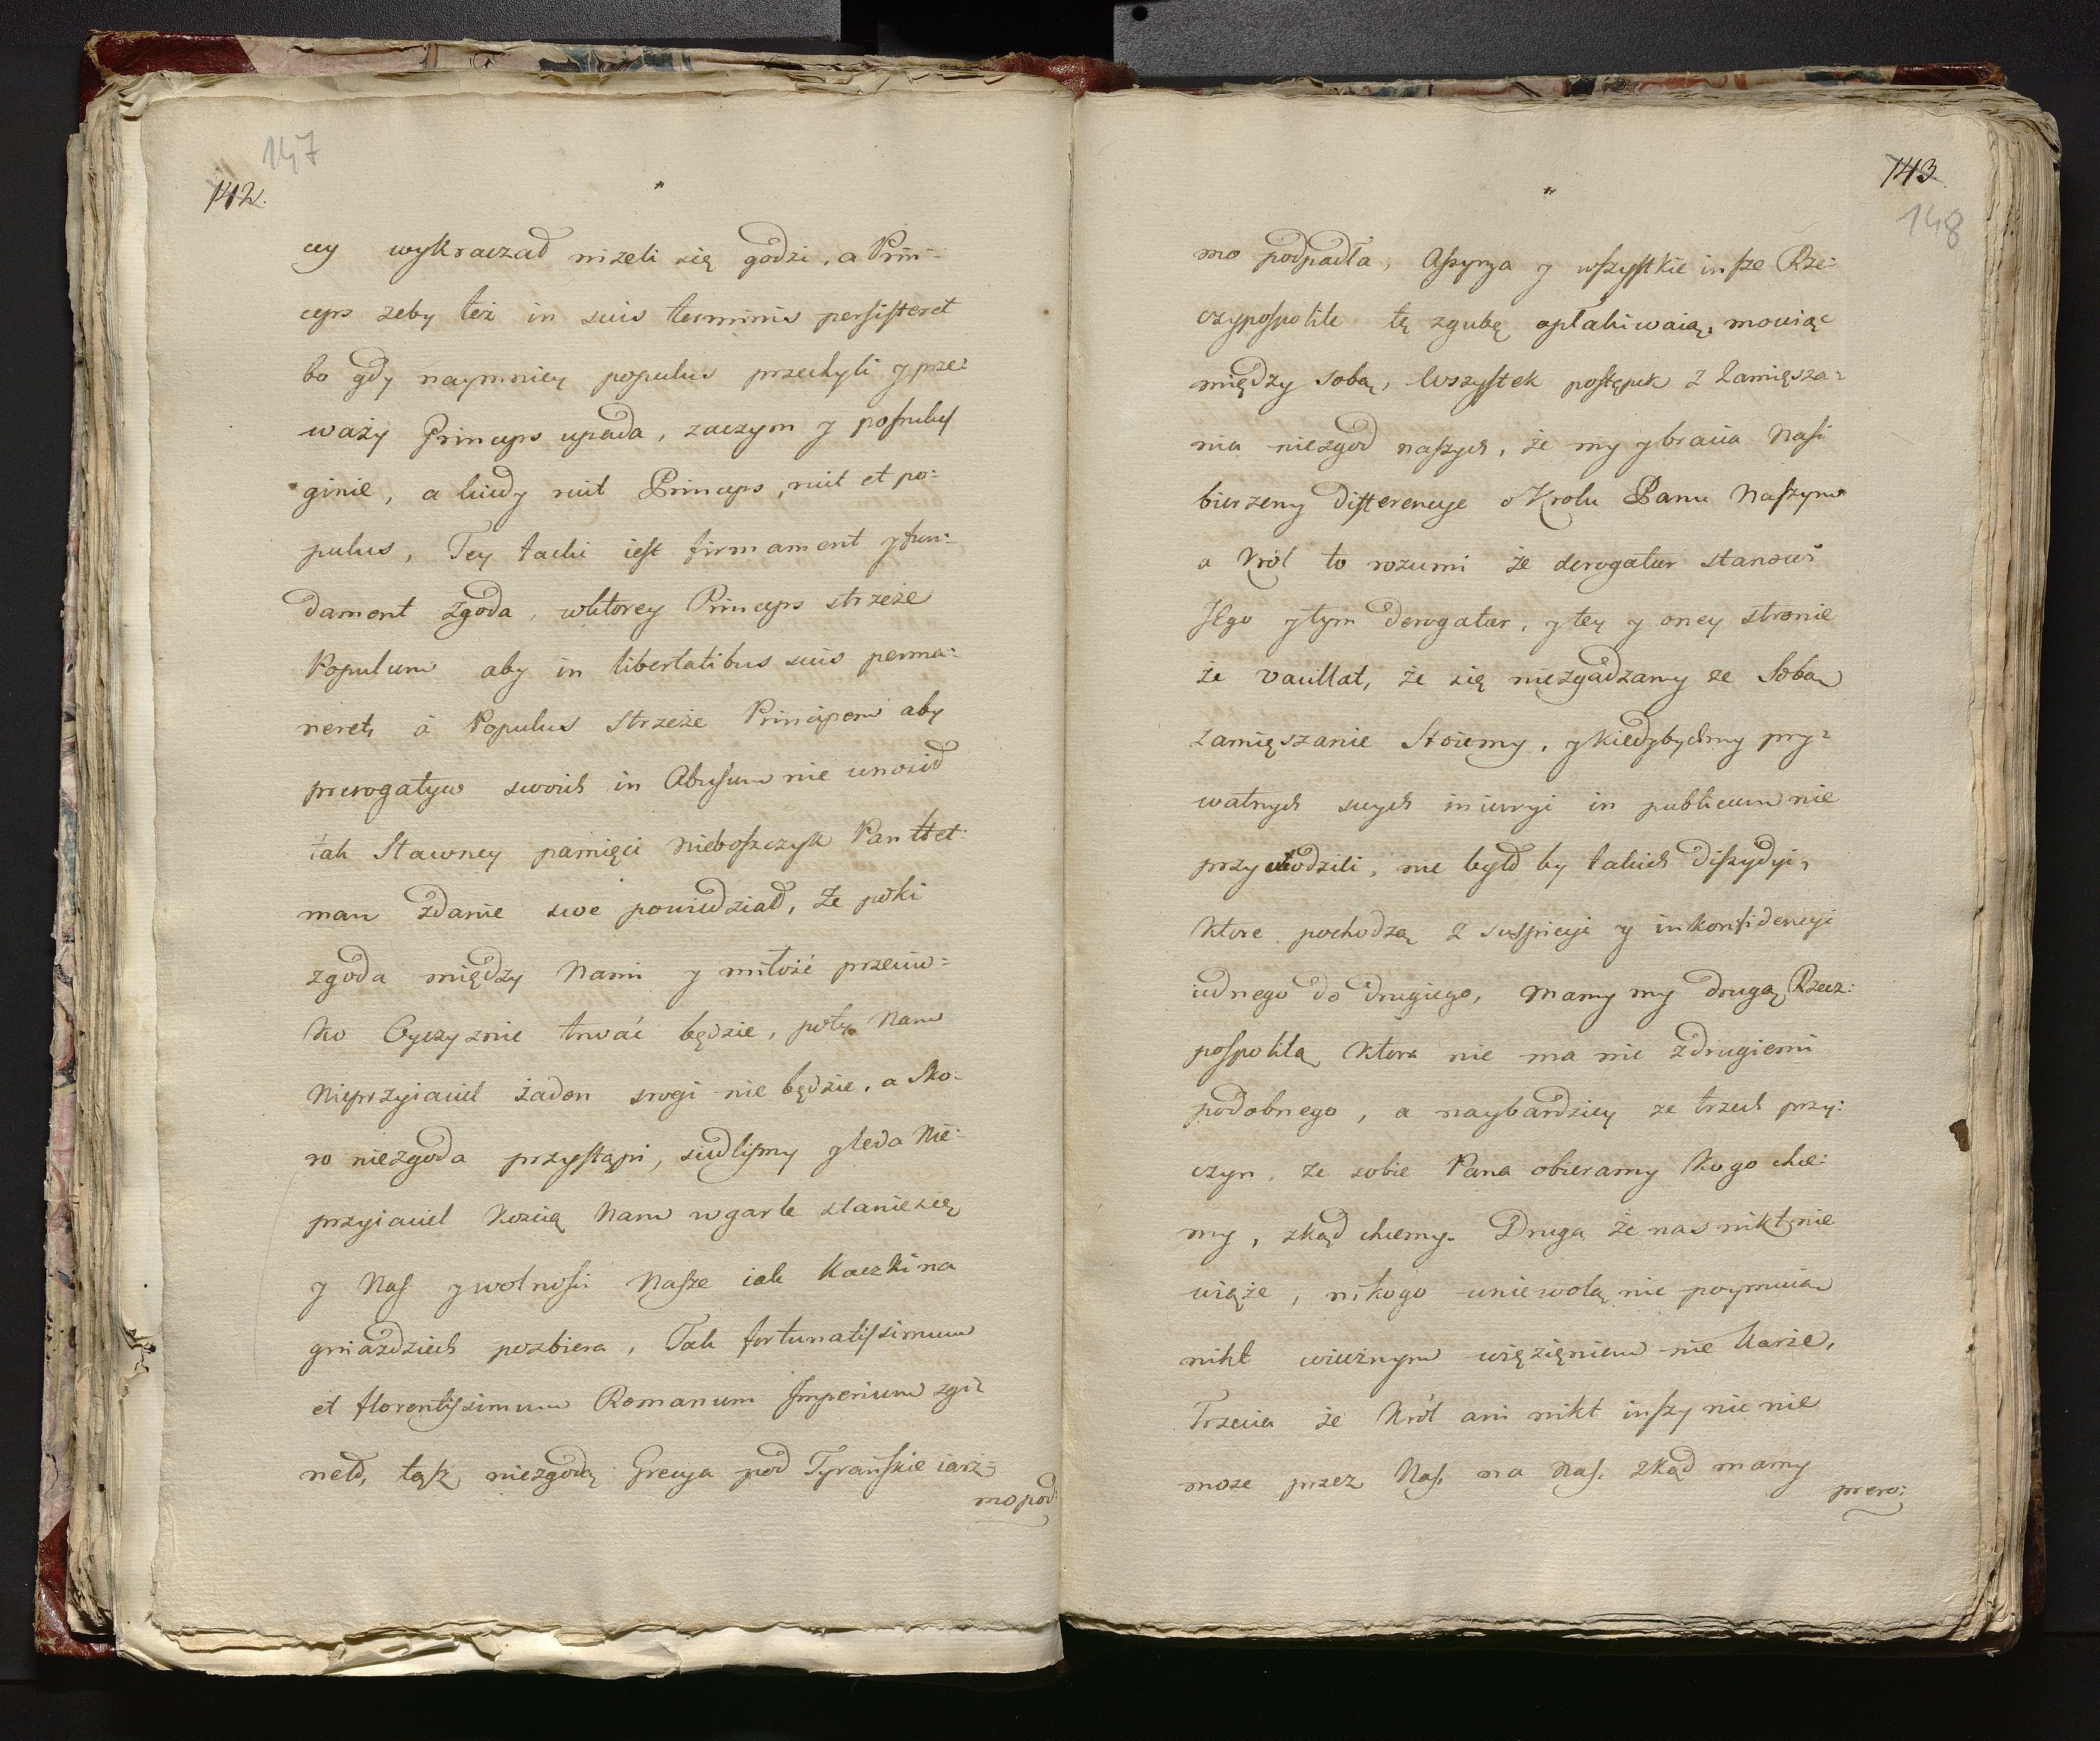 147
142.
cey wykraczał niżeli się godzi, a Prin:
ceps zeby też in suis terminis persisteret
bo gdy naymniey populus przechyli y prze:
waży Princeps upada, zaczym y populus
ginie, a kiedy ruit Princeps, ruit et po:
pulus, Tey tedy iest firmament y fun:
dament Zgoda, wktorey Princeps strzeże
Populum aby in libertatibus suis perma:
neret, à Populus Strzeże Principem aby
prerogatyw swoich in Abusum nie unosił
tak Sławney pamięci nieboszczyk Pan Het:
man zdanie swe powiedział, Ze póki
zgoda między Nami y miłość przeciw:
ko Oyczyznie trwać będzie, póty Nam
Nieprzyiaciel żaden srogi nie będzie, a Sko:
ro niezgoda przystąpi, siedlismy y leda Nie:
przyiaciel kością Nam w garle stanie się
y Nas y wolności Nasze iak kaczki na
gniazdziech pozbiera, Tak fortunatissimum
et florentissimum Romanum Imperium zgi:
neło, tąsz niezgodą Grecya pod Tyrańskie iarz:
mo pod:
143
148
mo podpadła, Assyrya y wszystkie insze Rze:
czypospolite tę zgubę opłakiwaią, mowiąc
między sobą, Wszystek postępek z Zamiesza:
nia niezgod naszych, że my y bracia Nasi
bierzemy differencye o Krolu Panu Naszym
a Król to rozumi że derogatur stanowi
Jego y tym derogatur, y tey y oney stronie
że vacillat, że się niezgadzamy ze Sobą
zamięszanie Stoiemy, y kiedybychmy pry:
watnych swych iniuryi in publicum nie
przywodzili, nie było by takich dissydyi,
Ktore pochodzą z suspicyi y inkonfidencyi
iednego do drugiego, Mamy my drugą Rzecz:
pospolitą Ktora nie ma nic z drugiemi
podobnego, a naybardziey ze trzech przy:
czyn, ze sobie Pana obieramy Kogo chce:
my, zkąd chcemy. Druga że nas nikt nie
wiąże, nikogo w niewolą nie poymuią
nikt wiecznym więzięniem nie karze,
Trzecia że Król ani nikt inszy nic nie
może przez Nas, na Nas. zkąd mamy
prero: